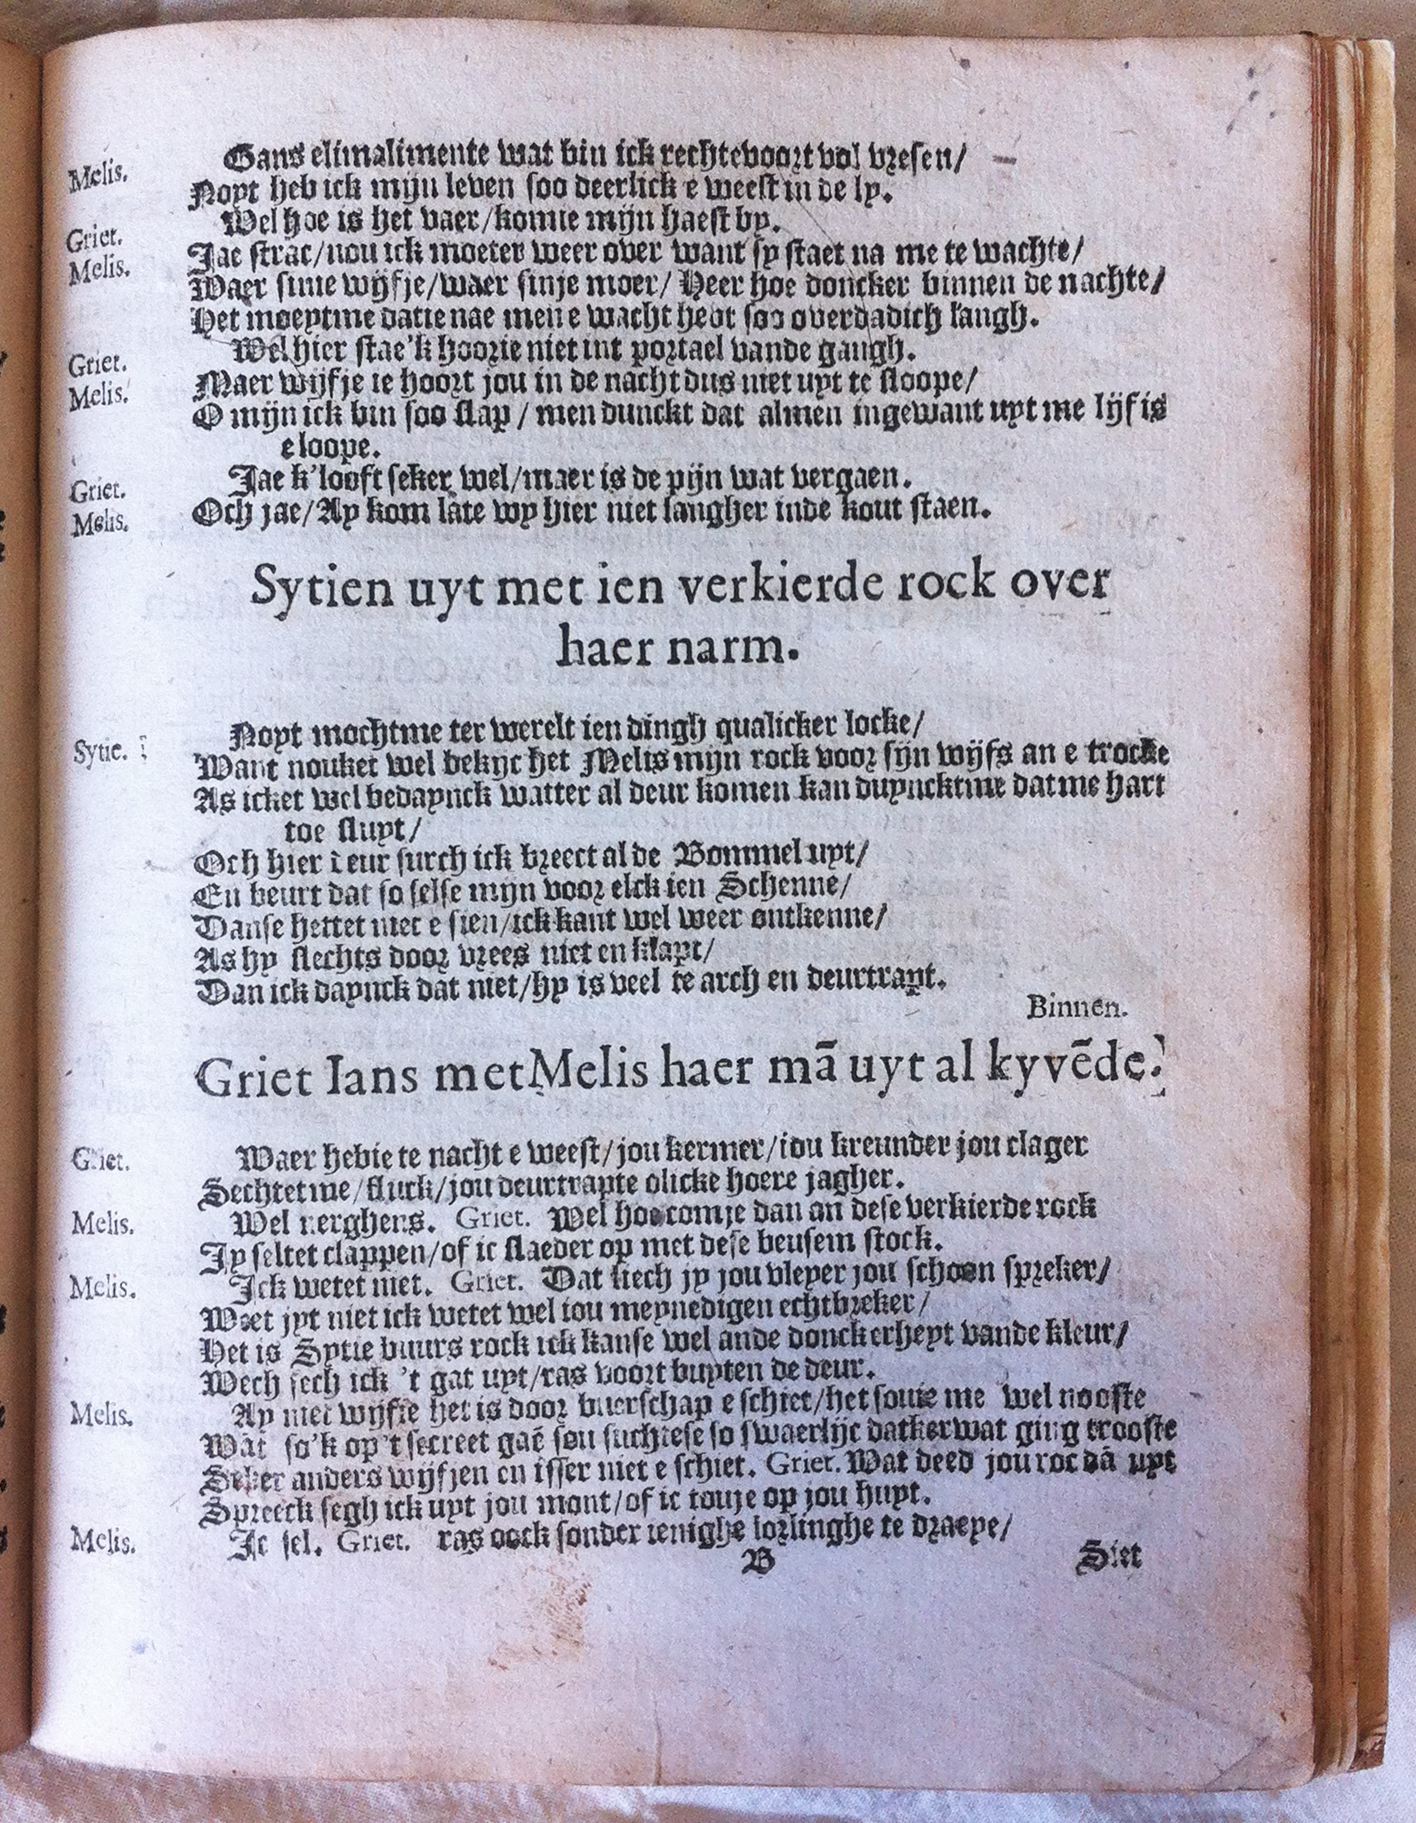 Melis. Gans elimalimente wat bin ick rechtevoort vol vresen/
Noyt heb ick mijn leven soo deerlick e weest in de ly.
Griet. Wel hoe is het vaer/komme mijn haest by.
Melis. Jae strac/nou ick moeter weer over want sy staet na me te wachte/
Waer sinie wijfje/waer sinje moer/ Heer hoe doncker binnen de nachte/
Het moeytme datie nae men e wacht hebt soo overdadich langh.
Griet. Wel hier stae'k hoorie niet int portael vande gangh.
Melis. Maer wijfje ie hoort jou in de nacht dus niet uyt te sloope/
O mijn ick bin soo slap/men dunckt dat almen ingewant uyt me lijf is
e loope.
Griet. Jae k'looft seker wel/maer is de pijn wat vergaen.
Melis. Och jae/Ay kom late wy hier niet langher inde kout staen.
Sytien uyt met ien verkierde rock over
haer narm.
Sytie. Noyt mochtme ter werelt ien dingh qualicker locke/
Want nouket wel bekijc het Melis mijn rock voor sijn wijfs an e trocke
As icket wel bedaynck watter al deur komen kan duyncktme datme hart
toe sluyt/
Och hier deur surch ick breect al de Bommel uyt/
En beurt dat so selse mijn voor elck ien Schenne/
Danse hettet niet e sien/ick kant wel weer ontkenne/
As hy slechts door vrees niet en klapt/
Dan ick daynck dat niet/hy is veel te arch en deurtrapt.
Binnen.
Griet Ians met Melis haer mã uyt al kyvẽde.
Griet. Waer hebie te nacht e weest/jou kermer/iou kreunder jou clager
Sechtetme/fluck/jou deurtrapte olicke hoere jagher.
Melis. Wel nerghens. Griet. Wel hoe comje dan an dese verkierde rock
Jy seltet clappen/of ic slaeder op met dese beusem stock.
Melis. Ick wetet niet. Griet. Dat liech jy jou vleyer jou schoon spreker/
Weet jyt niet ick wetet wel iou meynedigen echtbreker/
Het is Sytie buurs rock ick kanse wel ande donckerheyt vande kleur/
Wech sech ick 't gat uyt/ras voort buyten de deur.
Melis. Ay niet wijfje het is door buerschap e schiet/het souie me wel nooste
Wat so'k op't secreet gaẽ sou suchtese so swaerlijc datkerwat ging trooste
Seker anders wijfjen en isser niet e schiet. Griet. Wat deed jou roc dã uyt
Spreeck segh ick uyt jou mont/of ic touje op jou huyt.
Melis. Ic sel. Griet. ras oock sonder ienighe lorlinghe te draeye/
B Siet